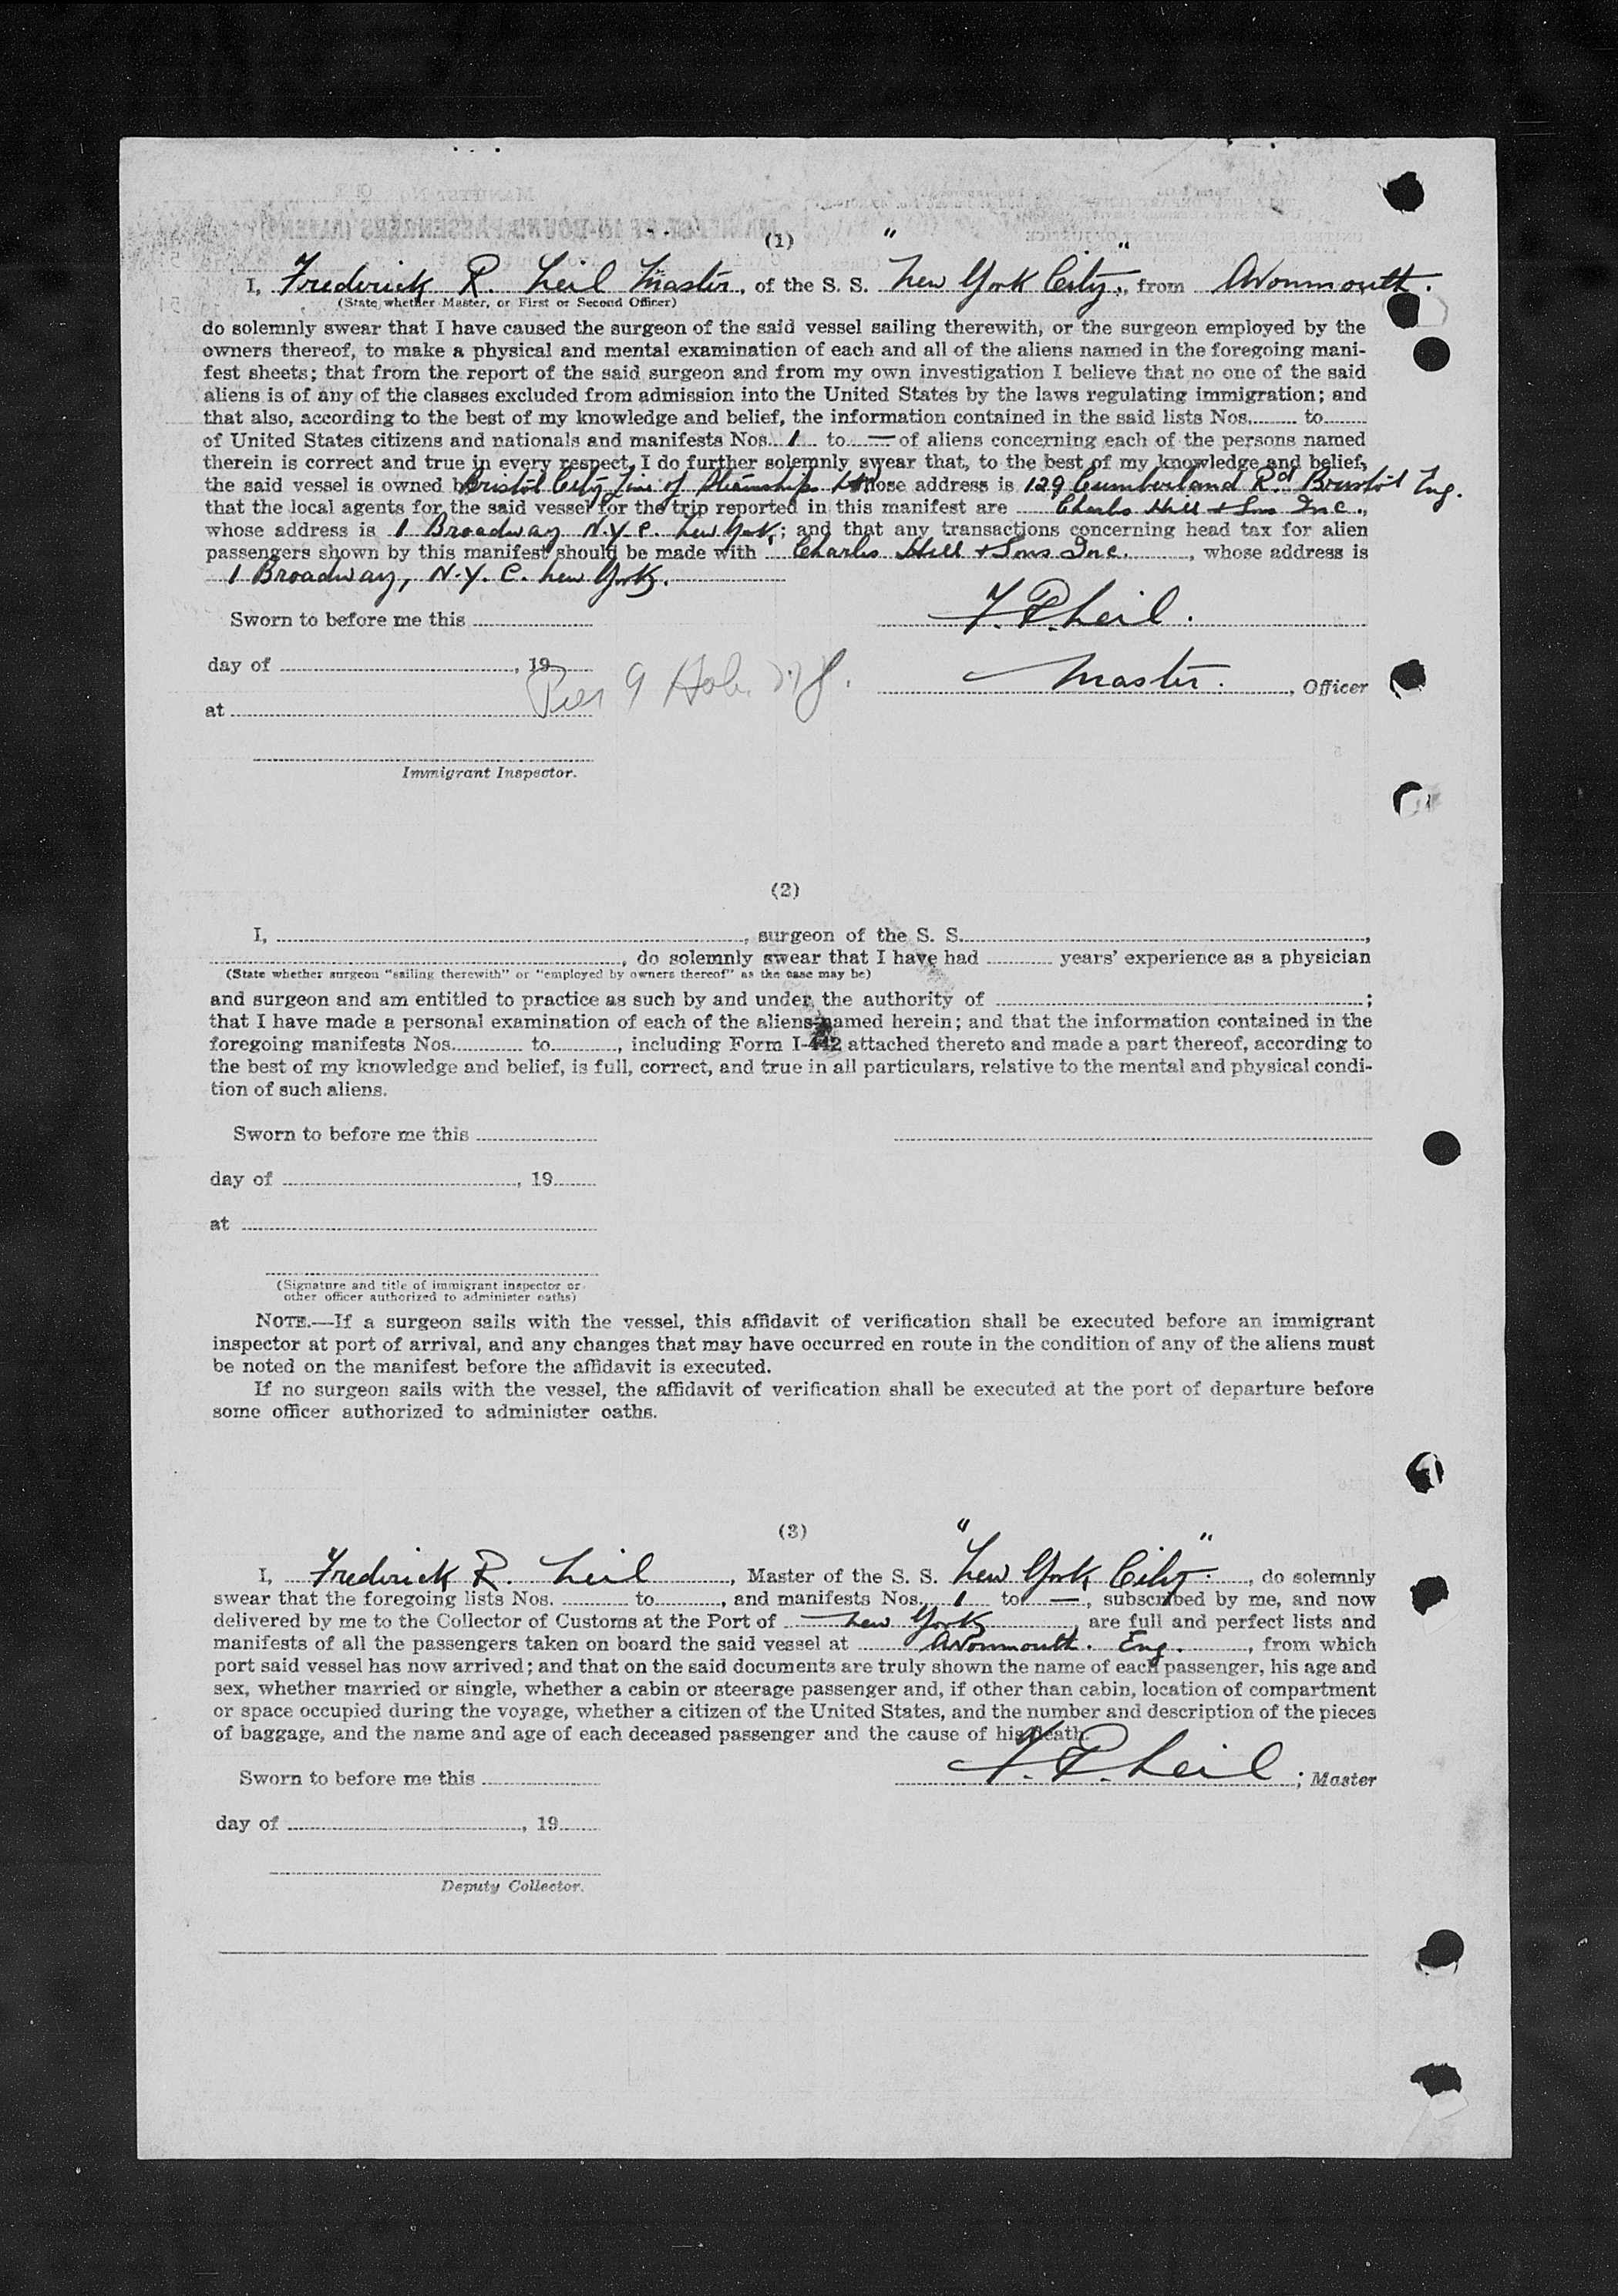 (1)
I, Frederick R. Neil Master, of the S. S. "New York City", from Avonmouth.
(State whether Master, or First or Second Officer)
do solemnly swear that I have caused the surgeon of the said vessel sailing therewith, or the surgeon employed by the
owners thereof, to make a physical and mental examination of each and all of the aliens named in the foregoing mani-
fest sheets; that from the report of the said surgeon and from my own investigation I believe that no one of the said
aliens is of any of the classes excluded from admission into the United States by the laws regulating immigration; and
that also, according to the best of my knowledge and belief, the information contained in the said lists Nos. to
of United States citizens and nationals and manifests Nos. 1 to — of aliens concerning each of the persons named
therein is correct and true in every respect. I do further solemnly swear that, to the best of my knowledge and belief,
the said vessel is owned by Bristol City Line of Steamships Ltd whose address is 129 Cumberland Rd Bristol Eng.
that the local agents for the said vessel for the trip reported in this manifest are Charles Hill + Sons Inc.,
whose address is 1 Broadway N.Y.C. New York; and that any transactions concerning head tax for alien
passengers shown by this manifest should be made with Charles Hill + Sons Inc., whose address is
1 Broadway, N.Y.C. New York.
Sworn to before me this F. R. Neil.
day of , 19 Pier 9 Hob. N.J. Master. , Officer
at
Immigrant Inspector.
(2)
I, , surgeon of the S. S. ,
, do solemnly swear that I have had years' experience as a physician
(State whether surgeon "sailing therewith" or "employed by owners thereof" as the case may be)
and surgeon and am entitled to practice as such by and under the authority of ;
that I have made a personal examination of each of the aliens named herein; and that the information contained in the
foregoing manifests Nos. to , including Form I-442 attached thereto and made a part thereof, according to
the best of my knowledge and belief, is full, correct, and true in all particulars, relative to the mental and physical condi-
tion of such aliens.
Sworn to before me this
day of , 19
at
(Signature and title of immigrant inspector or
other officer authorized to administer oaths)
NOTE.—If a surgeon sails with the vessel, this affidavit of verification shall be executed before an immigrant
inspector at port of arrival, and any changes that may have occurred en route in the condition of any of the aliens must
be noted on the manifest before the affidavit is executed.
If no surgeon sails with the vessel, the affidavit of verification shall be executed at the port of departure before
some officer authorized to administer oaths.
(3)
I, Frederick R. Neil , Master of the S. S. "New York City". , do solemnly
swear that the foregoing lists Nos. to , and manifests Nos. 1 to — , subscribed by me, and now
delivered by me to the Collector of Customs at the Port of New York , are full and perfect lists and
manifests of all the passengers taken on board the said vessel at Avonmouth. Eng. , from which
port said vessel has now arrived; and that on the said documents are truly shown the name of each passenger, his age and
sex, whether married or single, whether a cabin or steerage passenger and, if other than cabin, location of compartment
or space occupied during the voyage, whether a citizen of the United States, and the number and description of the pieces
of baggage, and the name and age of each deceased passenger and the cause of his death.
Sworn to before me this F. R. Neil ; Master
day of , 19
Deputy Collector.